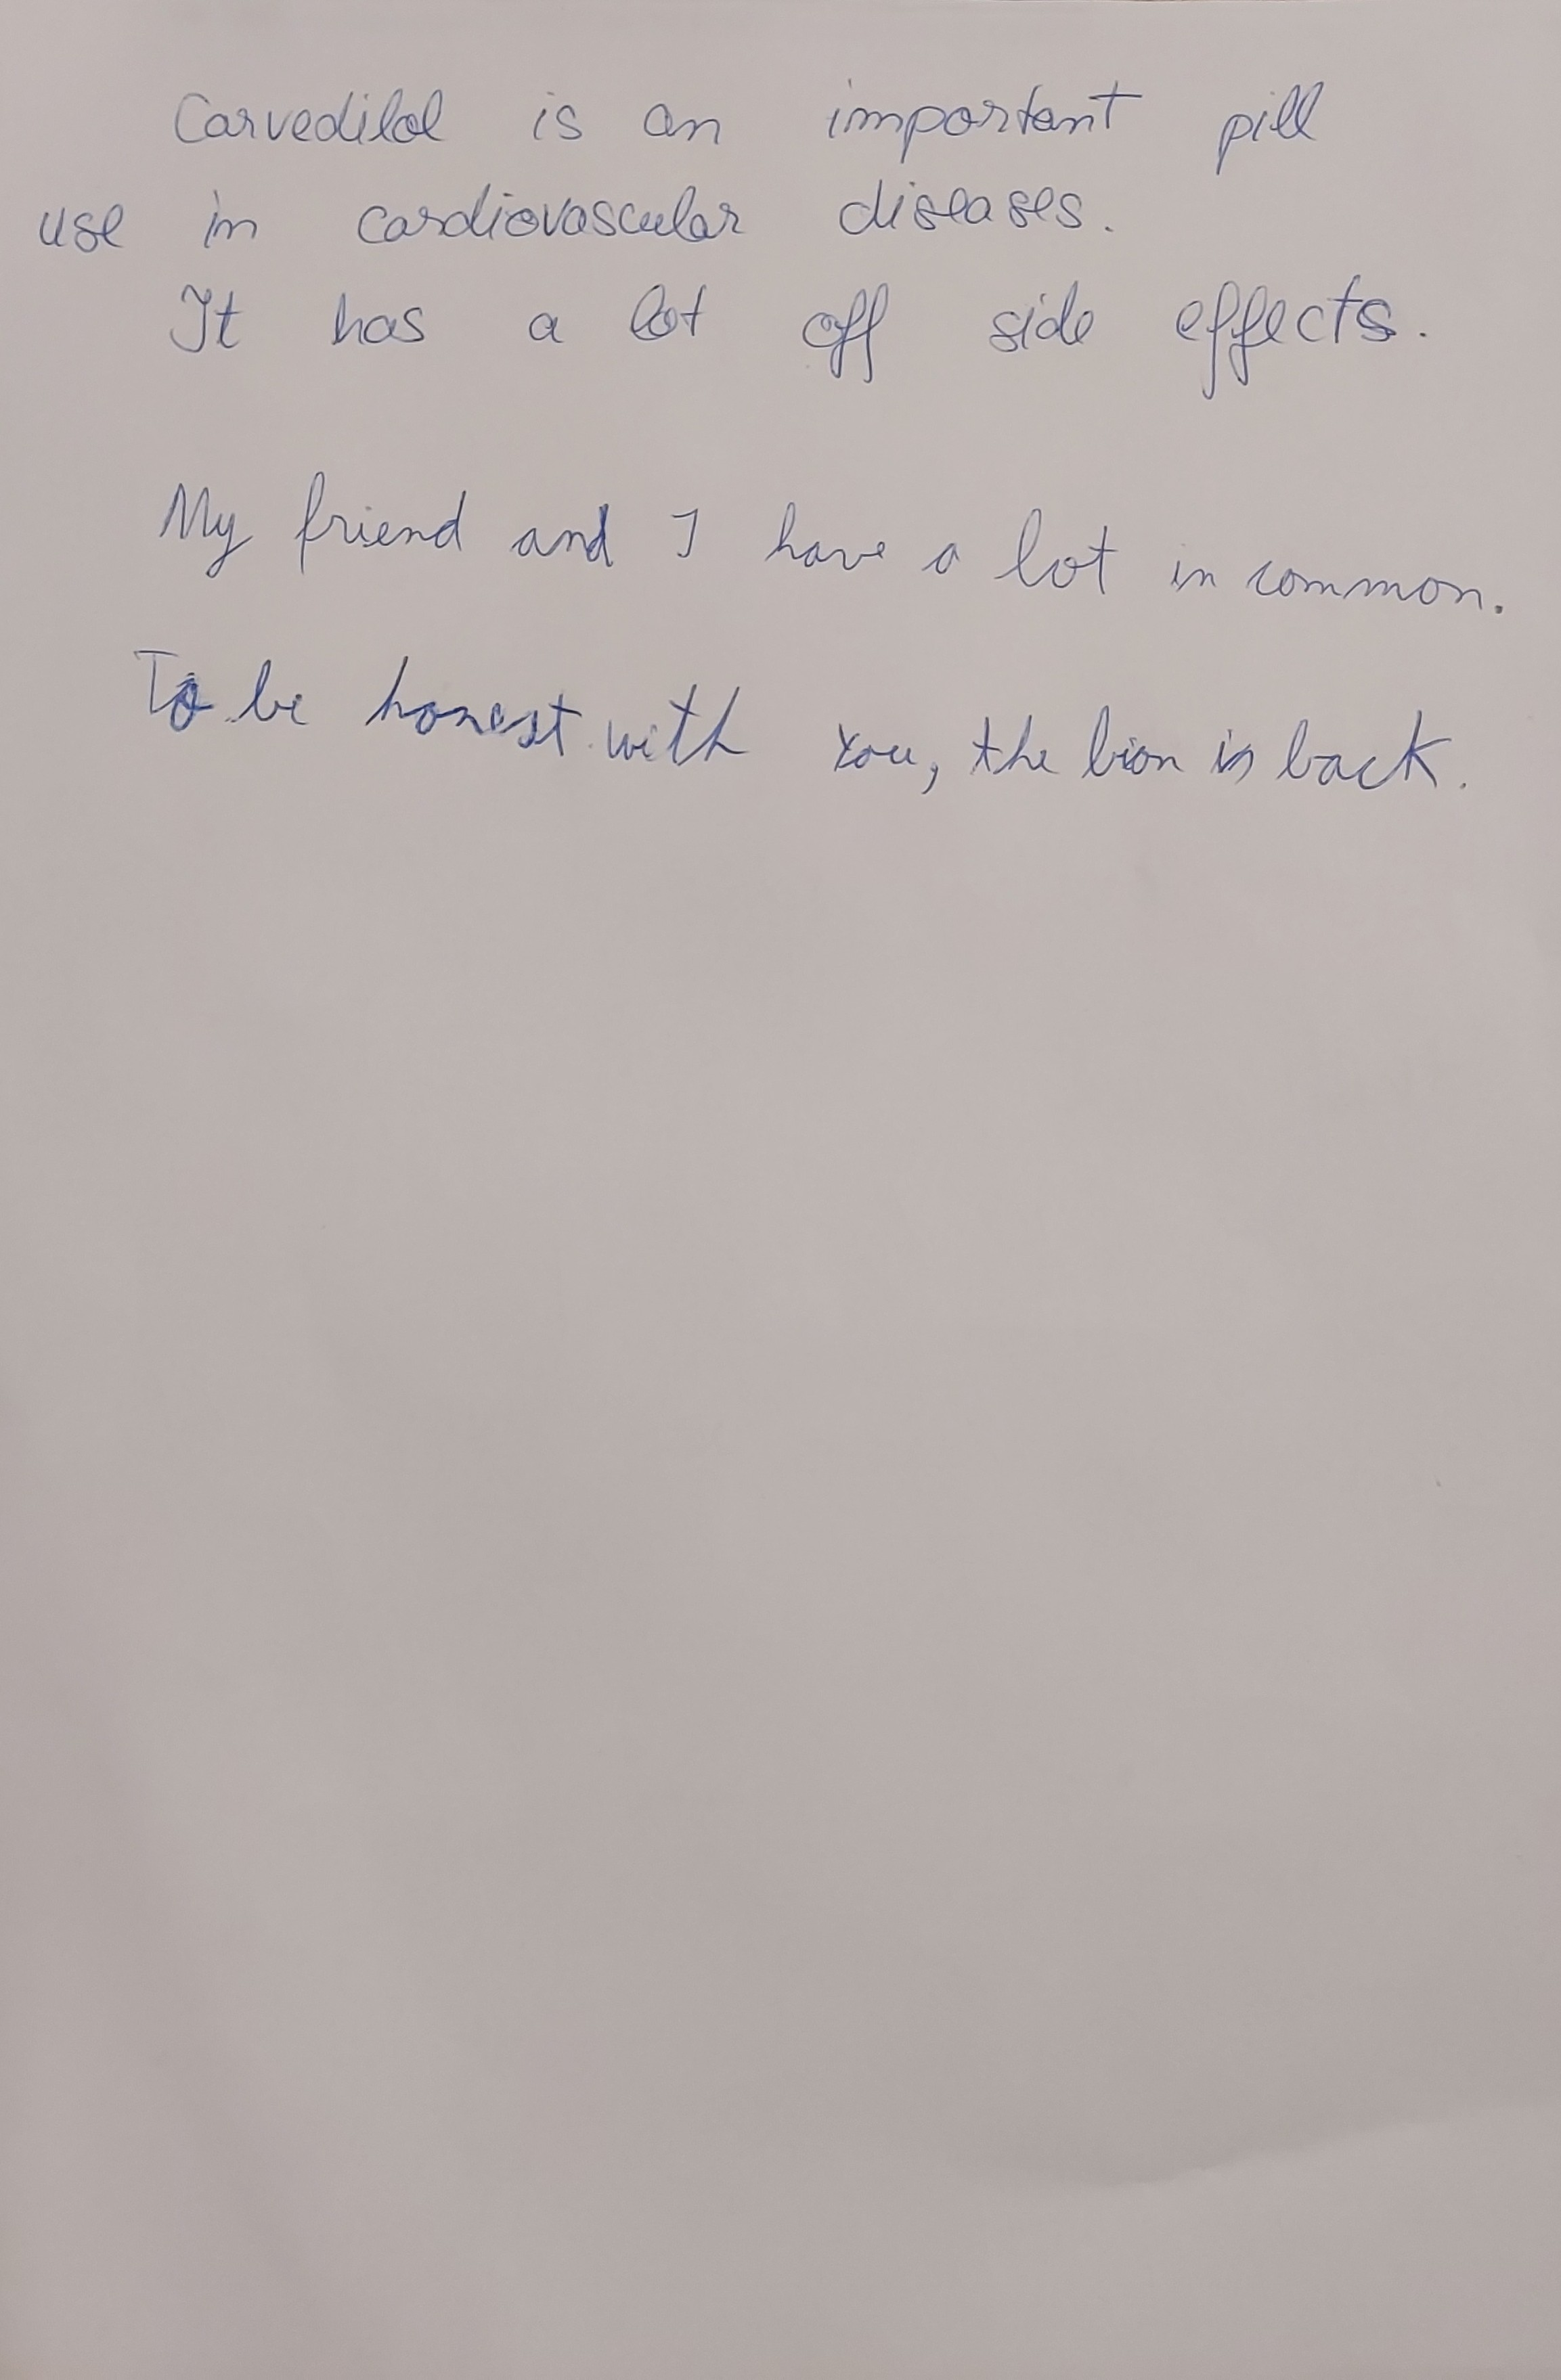 Carvedilol is an important pill
use in cardiovascular diseases.
It has a lot off side effects.
My friend and I have a lot in common.
To be honest with you, the lion is back.